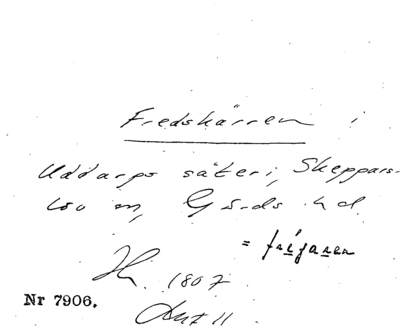 Fredskärren i
Uddarps säteri, Skeppars-
löv sn, Gärds hd.
= frigaren
1807
Nr 7906.